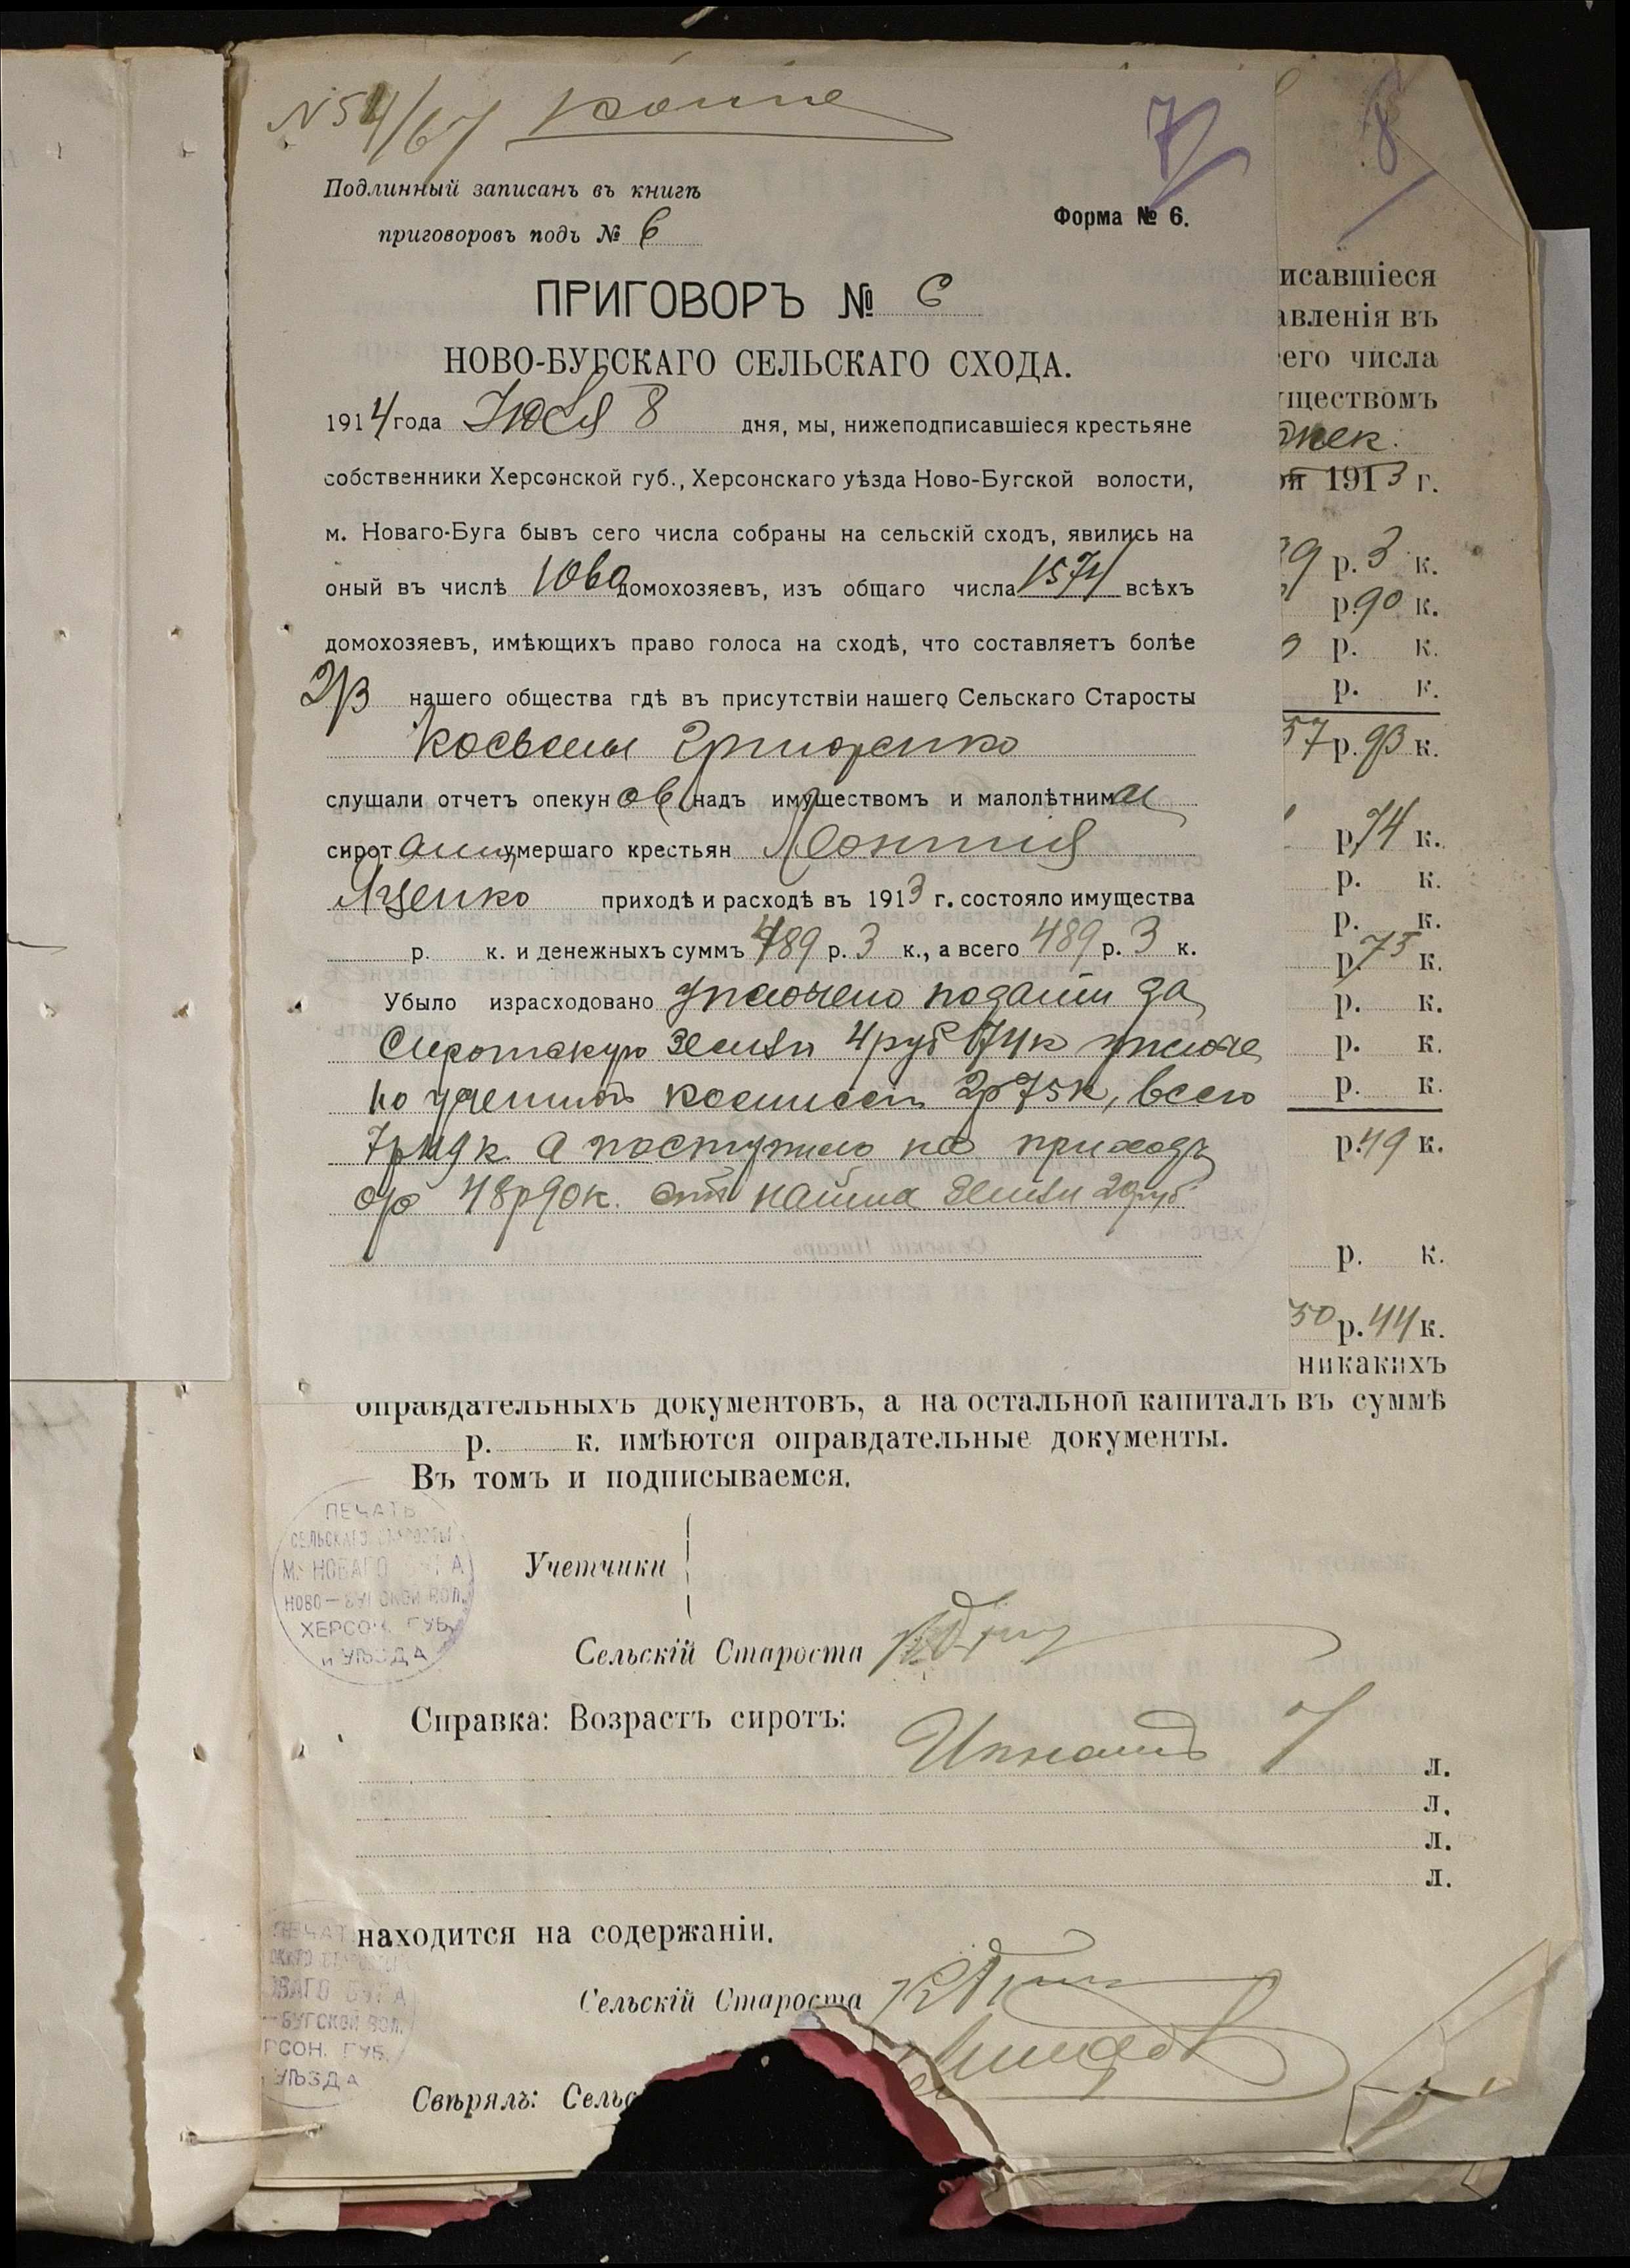 N 54/67 копие
7
8
Подлинный записанъ въ книгѣ
приговоровъ подъ № 6
Форма № 6.
ПРИГОВОРЪ № 6
НОВО-БУГСКАГО СЕЛЬСКАГО СХОДА.
1914 года Июля 8 дня, мы, нижеподписавшіеся крестьяне
собственники Херсонской губ., Херсонскаго уѣзда Ново-Бугской волости,
м. Новаго-Буга бывъ сего числа собраны на сельскій сходъ, явились на
оный въ числѣ 1060 домохозяевъ, изъ общаго числа 1574 всѣхъ
домохозяевъ, имѣющихъ право голоса на сходѣ, что составляетъ болѣе
2/3 нашего общества гдѣ въ присутствіи нашего Сельскаго Старосты
Косьмы
слушали отчетъ опекунов надъ имуществомъ и малолѣтними
сиротами умершаго крестьян Леонтия
Яценко приходѣ и расходѣ въ 1913 г. состояло имущества
р. к. и денежныхъ суммъ 489 р. 3 к., а всего 489 р. 3 к.
Убыло израсходовано уплочено подати за
Сиротскую землю 4 руб 74 к уплоче
но учетной комисси 2р 75к, всего
7р 49к. а поступило на приходъ
о/о 48р 90к. отъ найма земли 20 руб
исавшіеся
авленія въ
его числа
уществомъ
1913 г.
9 р. 3 к.
р. 90 к.
р. к.
р. к.
57 р. 93 к.
р. 74 к.
р. к.
р. к.
р. 75 к.
р. к.
р. к.
р. к.
р. 49 к.
р. к.
50 р. 44 к.
никакихъ
оправдательныхъ документовъ, а на остальной капиталъ въ суммѣ
р. к. имѣются оправдательные документы.
Въ томъ и подписываемся.
ПЕЧАТЬ
СЕЛЬСКАГО СТАРОСТЫ
М. НОВАГО БУГА
НОВО-БУГСКОЙ ВОЛ.
ХЕРСОН. ГУБ.
и УѢЗДА
Учетчики
Сельскій Староста
Справка: Возрастъ сиротъ:
Игнатъ 7 л.
л.
л.
л.
находится на содержаніи.
ПЕЧАТ
ВАГО БУГА
-БУГСКОЙ ВОЛ.
РСОН. ГУБ.
УѢЗДА
Сельскій Староста
Свѣрялъ: Сельс